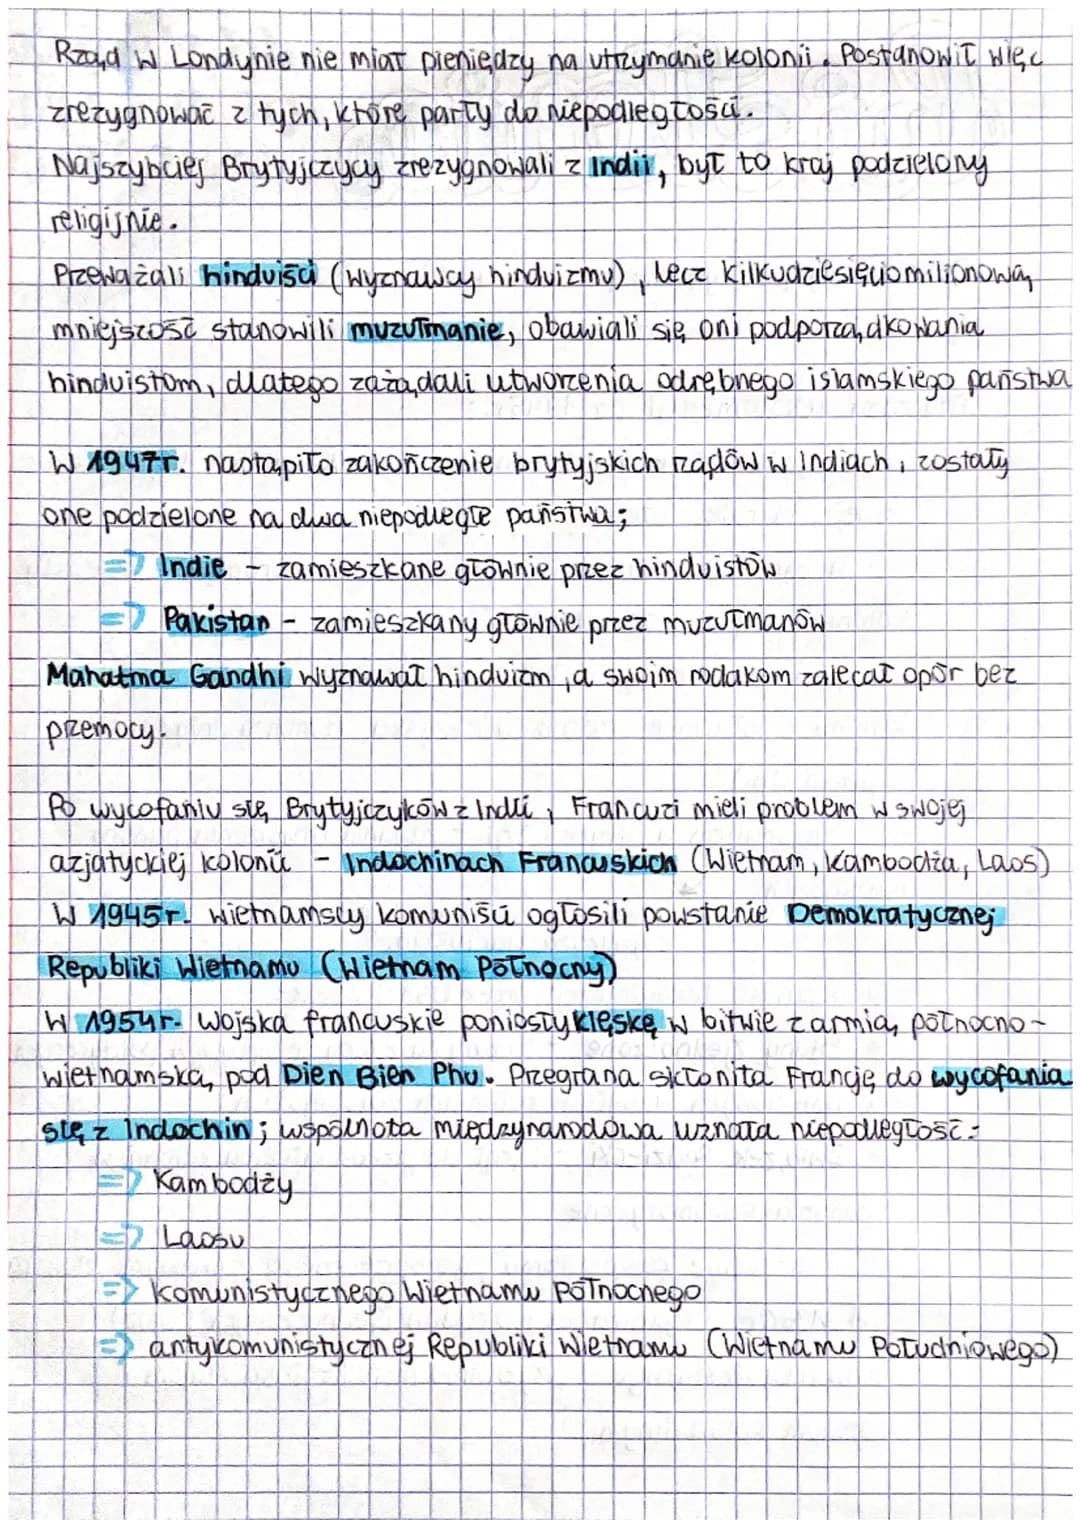 Rząd w Londynie nie miał pieniędzy na utrzymanie kolonii. Postanowił więc
zrezygnować z tych, które parły do niepodległości.
Najszybciej Brytyjczycy zrezygnowali z Indii, był to kraj podzielony
religijnie.
Przeważali hinduiści (wyznawcy hinduizmu), lecz kilkudziesięciomilionową
mniejszość stanowili muzułmanie, obawiali się oni podporządkowania
hinduistom, dlatego zażądali utworzenia odrębnego islamskiego państwa
W 1947r. nastąpiło zakończenie brytyjskich rządów w Indiach, zostały
one podzielone na dwa niepodległe państwa;
=> Indie - zamieszkane głównie przez hinduistów
=> Pakistan - zamieszkany głównie przez muzułmanów
Mahatma Gandhi wyznawał hinduizm, a swoim rodakom zalecał opór bez
przemocy.
Po wycofaniu się Brytyjczyków z Indii, Francuzi mieli problem w swojej
azjatyckiej kolonii - Indochinach Francuskich (Wietnam, Kambodża, Laos)
W 1945r. wietnamscy komuniści ogłosili powstanie Demokratycznej
Republiki Wietnamu (Wietnam Północny)
W 1954r. wojska francuskie poniosły klęskę w bitwie z armią północno-
wietnamską pod Dien Bien Phu. Przegrana skłoniła Francję do wycofania
się z Indochin; wspólnota międzynarodowa uznała niepodległość:
=> Kambodży
=> Laosu
=> komunistycznego Wietnamu Północnego
=> antykomunistycznej Republiki Wietnamu (Wietnamu Południowego)